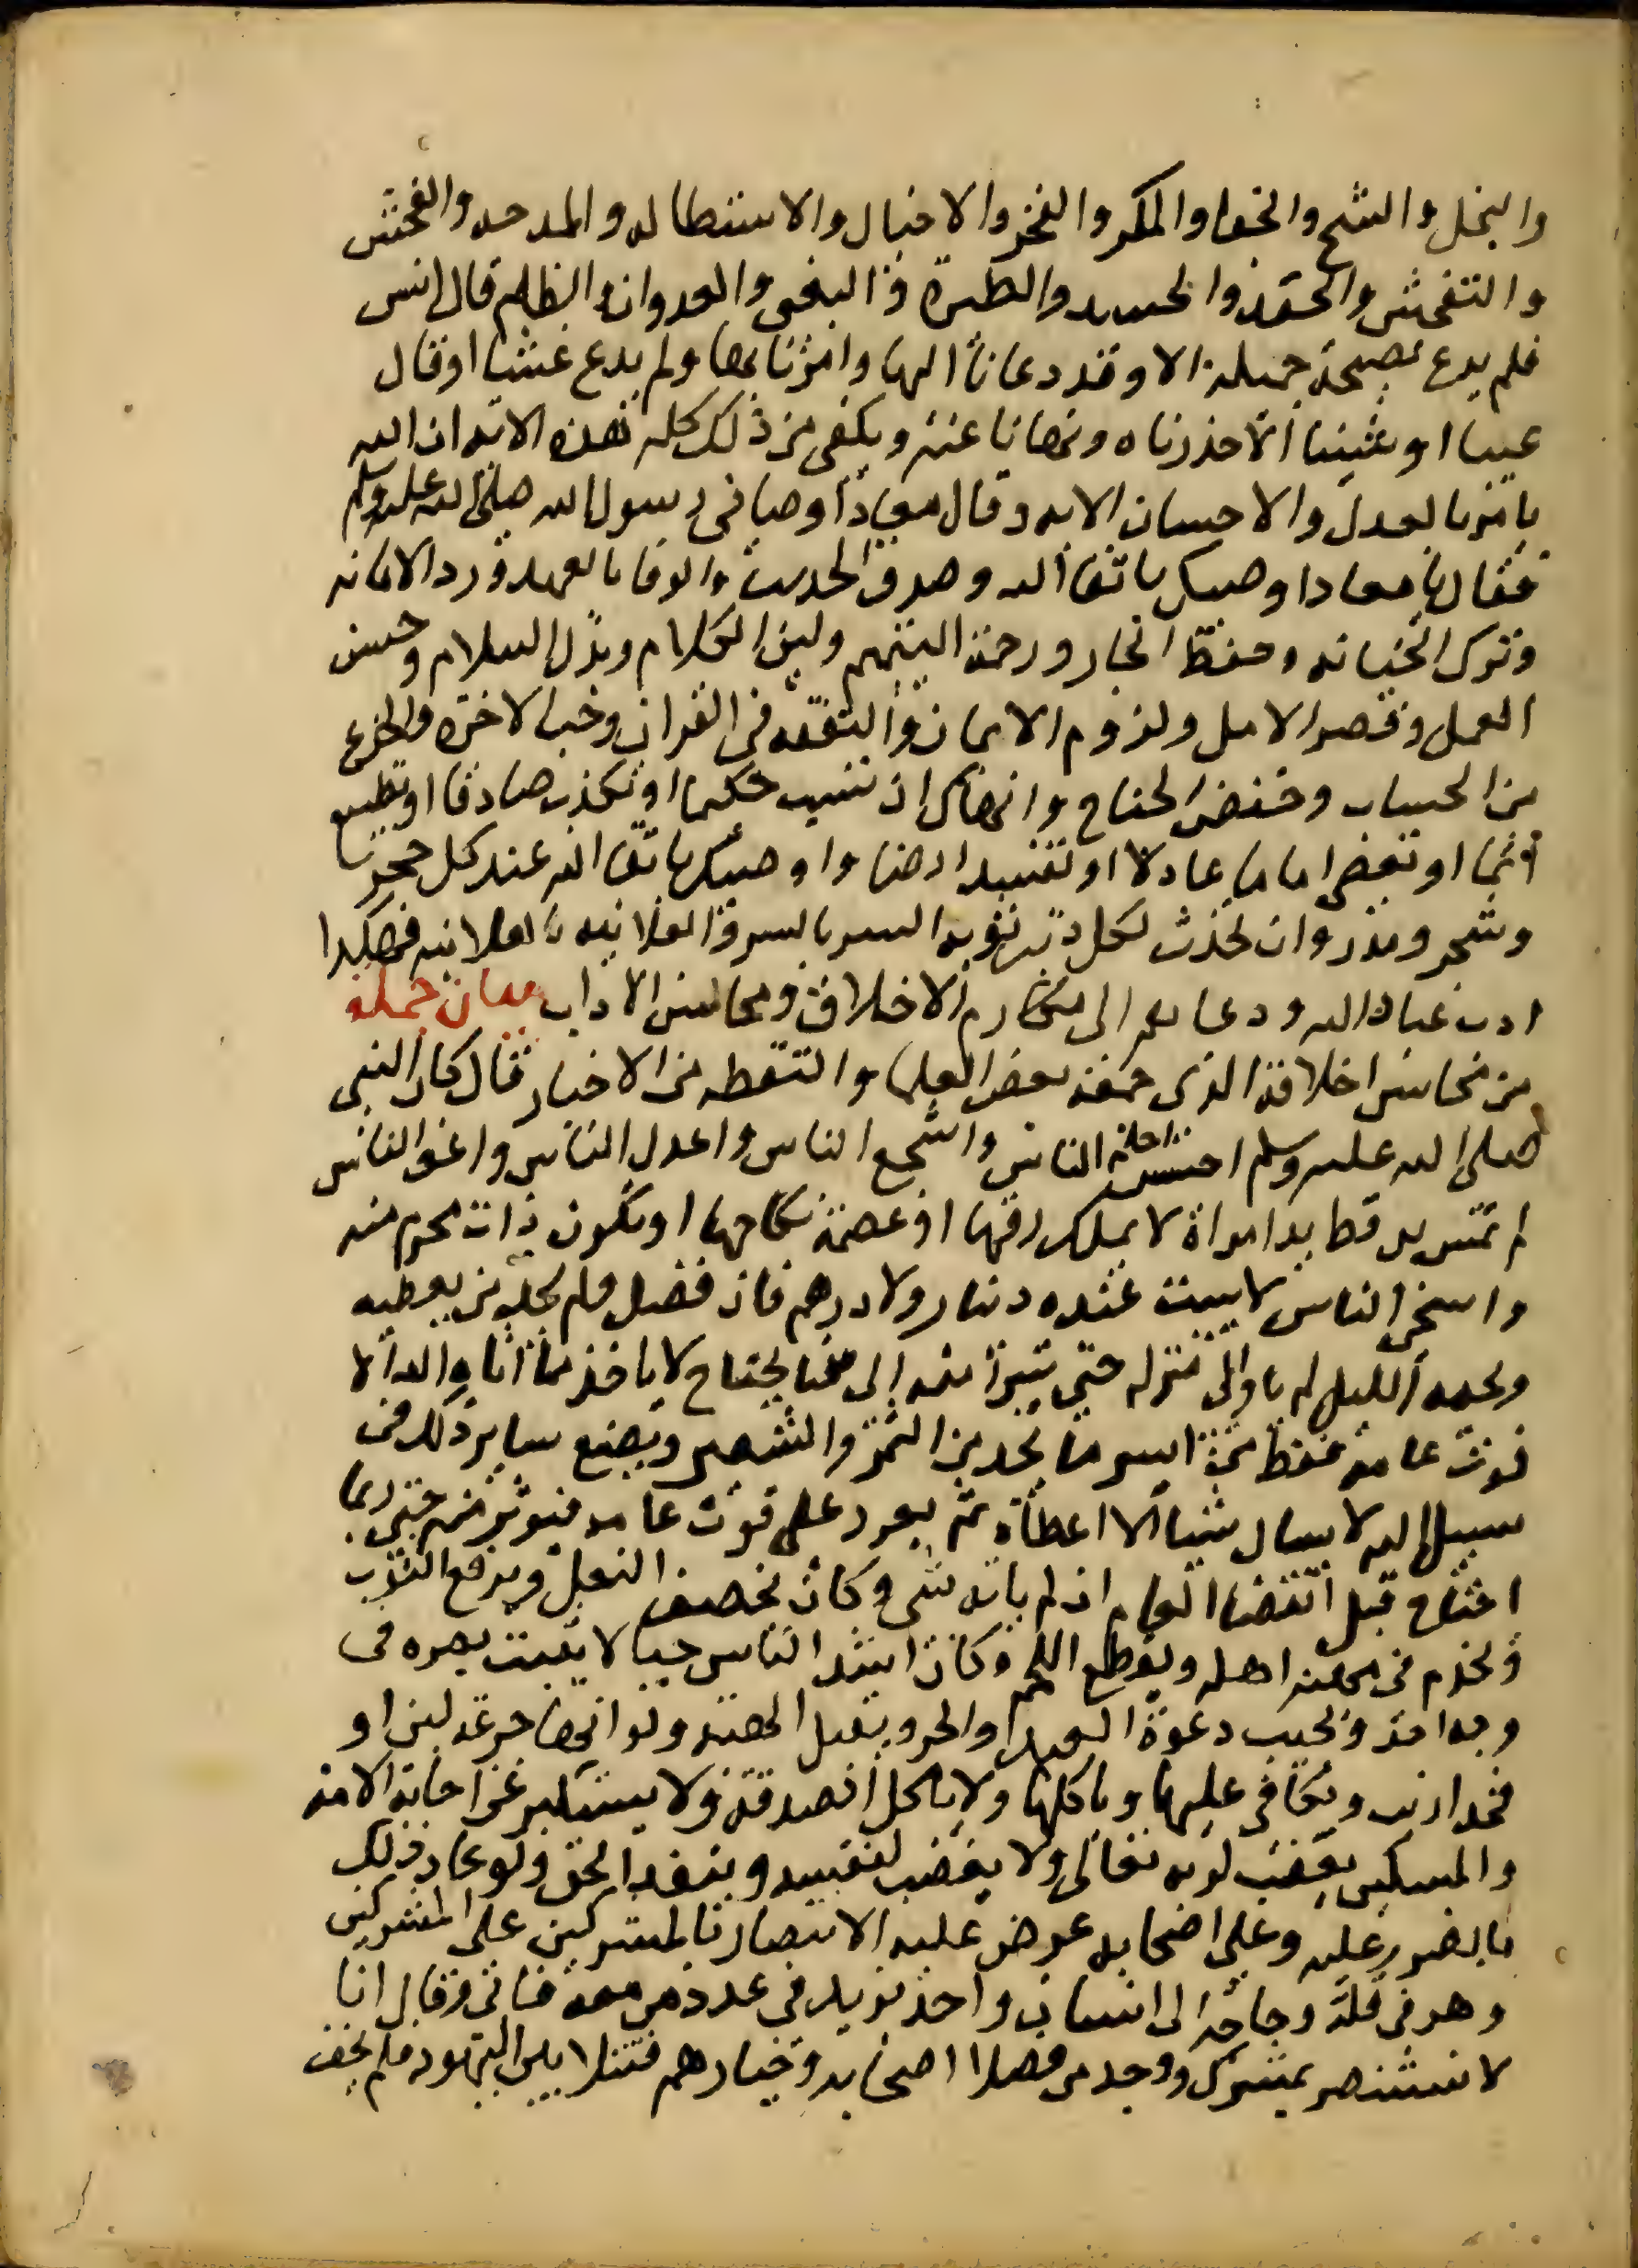 والبخل والشح والجفا والمكر والفخر والاختيال والاستطاله والمدحه والفحش
والتفحش والحقد والحسد والطيرة والبغى والعدوان والظلم قال انس
فلم يدع نصيحة جميلة الا وقد دعانا اليها وامرنا بها ولم يدع غشا او قال
عيبا او شينا الا حذرناه ونهانا عنه ويكفى من ذلك كله هذه الايه ان الله
يامر بالعدل والاحسان الايه وقال معاذ اوصانى رسول الله صلى الله عليه وسلم
فقال يا معاذ اوصيك باتقا الله وصدق الحديث والوفا بالعهد ورد الامانه
وترك الخيانه وحفظ الجار ورحمة اليتيم ولين الكلام وبذل السلام وحسن
العمل وقصر الامل ولزوم الايمان والتفقه فى القران وحب الاخرة والجزع
من الحساب وخفض الجناح وانهاك ان تسب حكيما او تكذب صادقا او تطيع
آثما او تعصى اماما عادلا او تفسد ارضا واوصيك باتقا الله عند كل حجر
وشجر ومدر وان تحدث لكل ذنب توبة السر بالسر والعلانيه بالعلانيه فهكذا
ادب عباد الله ودعاهم الى مكارم الاخلاق ومحاسن الاداب بيان جملة
من محاسن اخلاقه الذى جمعه بعض العلما والتقطه من الاخبار فقال كان النبى
صلى الله عليه وسلم احلم الناس واشجع الناس واعدل الناس واعف الناس
لم تمس يده قط يد امراة لا يملك رقها او عصمة نكاحها او تكون ذات محرم منه
واسخى الناس لا يبيت عنده دينار ولا درهم فان فضل ولم يجد من يعطيه
وفجاه الليل لم ياو الى منزله حتى يتبرأ منه الى من يحتاج لا ياخذ مما اتاه الله الا
قوت عامه فقط من ايسر ما يجد من التمر والشعير ويضع ساير ذلك فى
سبيل الله لا يسال شيا الا اعطاه ثم يعود على قوت عامه فيوثر منه حتى ربما
احتاج قبل انقضا العام ان لم ياته شى وكان يخصف النعل ويرقع الثوب
ويخدم فى مهنة اهله ويقطع اللحم وكان اشد الناس حيا لا يثبت بصره فى
وجه احد ويجيب دعوة العبد والحر ويقبل الهديه ولو انها جرعة لبن او
فخذ ارنب ويكافى عليها وياكلها ولا ياكل الصدقة ولا يستكبر عن اجابة الامة
والمسكين يغضب لربه تعالى ولا يغضب لنفسه وينفذ الحق ولو عاد ذلك
بالضرر عليه وعلى اصحابه عرض عليه الانتصار بالمشركين على المشركين
وهو فى قلة وحاجة الى انسان واحد يزيده فى عدد من معه فابى وقال انا
لا نستنصر بمشرك ووجد من فضلا اصحابه وخيارهم قتيلا بين اليهود فلم يحف